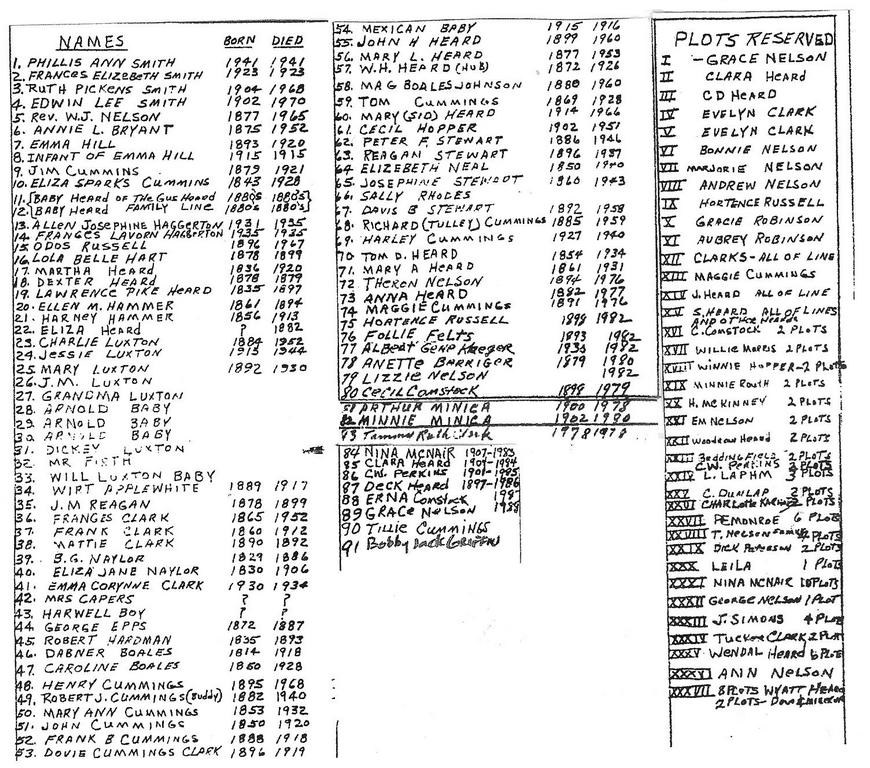 NAMES BORN DIED
1. PHILLIS ANN SMITH 1941 1941
2. FRANCES ELIZEBETH SMITH 1923 1923
3. RUTH PICKENS SMITH 1904 1968
4. EDWIN LEE SMITH 1902 1970
5. REV. W.J. NELSON 1877 1965
6. ANNIE L. BRYANT 1875 1952
7. EMMA HILL 1893 1920
8. INFANT OF EMMA HILL 1915 1915
9. JIM CUMMINS 1879 1921
10. ELIZA SPARKS CUMMINS 1843 1928
11. BABY HEARD OF THE GUS HEARD 1880s 1880s
12. BABY HEARD FAMILY LINE 1880s 1880s
13. ALLEN JOSEPHINE HAGGERTON 1931 1935
14. FRANCES LAVORN HAGGERTON 1935 1935
15. ODOS RUSSELL 1896 1967
16. LOLA BELLE HART 1878 1899
17. MARTHA HEARD 1836 1920
18. DEXTER HEARD 1878 1879
19. LAWRENCE PIKE HEARD 1835 1897
20. ELLEN M. HAMMER 1861 1894
21. HARNEY HAMMER 1856 1913
22. ELIZA HEARD ? 1882
23. CHARLIE LUXTON 1884 1952
24. JESSIE LUXTON 1913 1944
25. MARY LUXTON 1892 1930
26. J.M. LUXTON
27. GRANDMA LUXTON
28. ARNOLD BABY
29. ARNOLD BABY
30. ARNOLD BABY
31. DICKEY LUXTON
32. MR FIRTH
33. WILL LUXTON BABY
34. WIRT APPLEWHITE 1889 1917
35. J.M REAGAN 1878 1899
36. FRANCES CLARK 1865 1952
37. FRANK CLARK 1860 1912
38. MATTIE CLARK 1890 1892
39. B.G. NAYLOR 1829 1886
40. ELIZA JANE NAYLOR 1830 1906
41. EMMA CORYNNE CLARK 1930 1934
42. MRS CAPERS ? ?
43. HARWELL BOY ? ?
44. GEORGE EPPS 1872 1887
45. ROBERT HARDMAN 1835 1893
46. DABNER BOALES 1814 1918
47. CAROLINE BOALES 1850 1928
48. HENRY CUMMINGS 1895 1968
49. ROBERT J. CUMMINGS (Buddy) 1882 1940
50. MARY ANN CUMMINGS 1853 1932
51. JOHN CUMMINGS 1850 1920
52. FRANK B CUMMINGS 1888 1918
53. DOVIE CUMMINGS CLARK 1896 1919
54. MEXICAN BABY 1915 1916
55. JOHN H HEARD 1899 1960
56. MARY L. HEARD 1877 1953
57. W.H. HEARD (HUB) 1872 1926
58. MAG BOALES JOHNSON 1880 1960
59. TOM CUMMINGS 1869 1928
60. MARY (SID) HEARD 1914 1966
61. CECIL HOPPER 1902 1951
62. PETER F. STEWART 1886 1946
63. REAGAN STEWART 1896 1937
64. ELIZEBETH NEAL 1850 1940
65. JOSEPHINE STEWART 1860 1943
66. SALLY RHODES
67. DAVIS B STEWART 1892 1958
68. RICHARD (TULLEY) CUMMINGS 1885 1959
69. HARLEY CUMMINGS 1927 1940
70 TOM D. HEARD 1854 1934
71. MARY A HEARD 1861 1931
72. THEREN NELSON 1894 1976
73 ANNA HEARD 1882 1977
74 MAGGIE CUMMINGS 1891 1976
75 HORTENCE RUSSELL 1898 1982
76 FOLLIE FELTS 1893 1982
77 ALBERT GENE Kaeger 1930 1982
78 ANETTE BARRIGER 1879 1980
79 LIZZIE NELSON 1982
80 CECIL Comstock 1898 1979
81 ARTHUR MINICA 1900 1978
82 MINNIE MINICA 1902 1980
83 Tammy Ruth Clark 1978 1978
84 NINA MCNAIR 1907-1983
85 CLARA HEARD 1907-1984
86 C.W. PERKINS 1901-1985
87 DECK HEARD 1897-1986
88 ERNA Comstock 1987
89 GRACE NELSON 1988
90 TILLIE CUMMINGS
91 Bobby Jack GRIFFIN
PLOTS RESERVED
I - GRACE NELSON
II CLARA HEARD
III CD HEARD
IV EVELYN CLARK
V EVELYN CLARK
VI BONNIE NELSON
VII MARJORIE NELSON
VIII ANDREW NELSON
IX HORTENCE RUSSELL
X GRACIE ROBINSON
XI AUBREY ROBINSON
XII CLARKS - ALL OF LINE
XIII MAGGIE CUMMINGS
XIV J. HEARD ALL OF LINE
XV S. HEARD ALL OF LINES
AND OTHER HEARDS
XVI C. COMSTOCK 2 PLOTS
XVII WILLIE MORRIS 2 PLOTS
XVIII WINNIE HOPPER - 2 PLOTS
XIX MINNIE ROUTH 2 PLOTS
XX H. McKINNEY 2 PLOTS
XXI EM NELSON 2 PLOTS
XXII Woodrow Heard 2 PLOTS
XXIII BEDDINGFIELD 2 PLOTS
C.W. PERKINS 2 PLOTS
XXIV L. LAPHM 3 PLOTS
XXV C. DUNLAP 2 PLOTS
XXVI CHARLOTTE 2 PLOTS
XXVII PEMONROE 6 PLOTS
XXVIII T. NELSON 4 PLOTS
XXIX DICK PETERSON 2 PLOTS
XXX LEILA 1 PLOT
XXXI NINA MCNAIR 10 PLOTS
XXXII GEORGE NELSON 1 PLOT
XXXIII J. SIMONS 4 PLOTS
XXXIV TUCKER CLARK 2 PLOTS
XXXV WENDAL HEARD 6 PLOTS
XXXVI ANN NELSON
XXXVII 8 PLOTS WYATT HEARD
2 PLOTS -